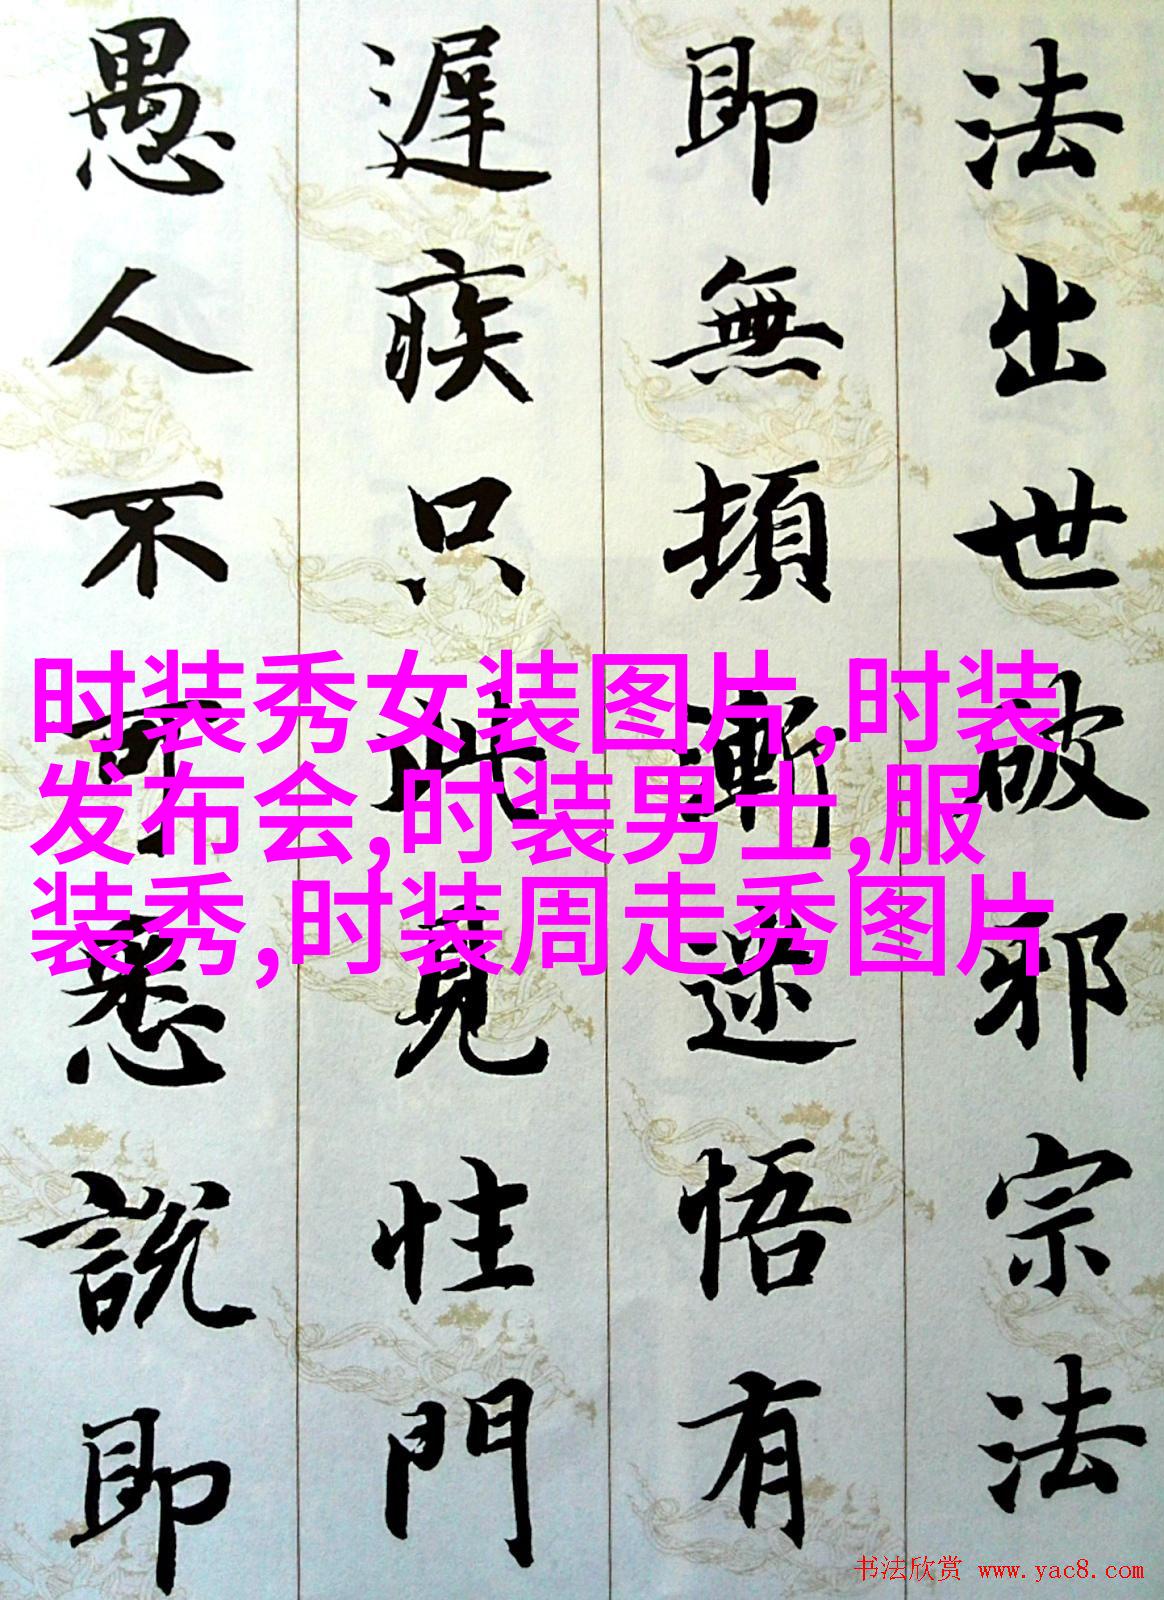 法出世破邪宗法
即無頓漸迷悟有
遲疾只此見性門
愚人不可悉說即
时装秀女装图片,时装
发布会,时装男士,服
装秀,时装周走秀图片
书法欣赏 www.yac8.com